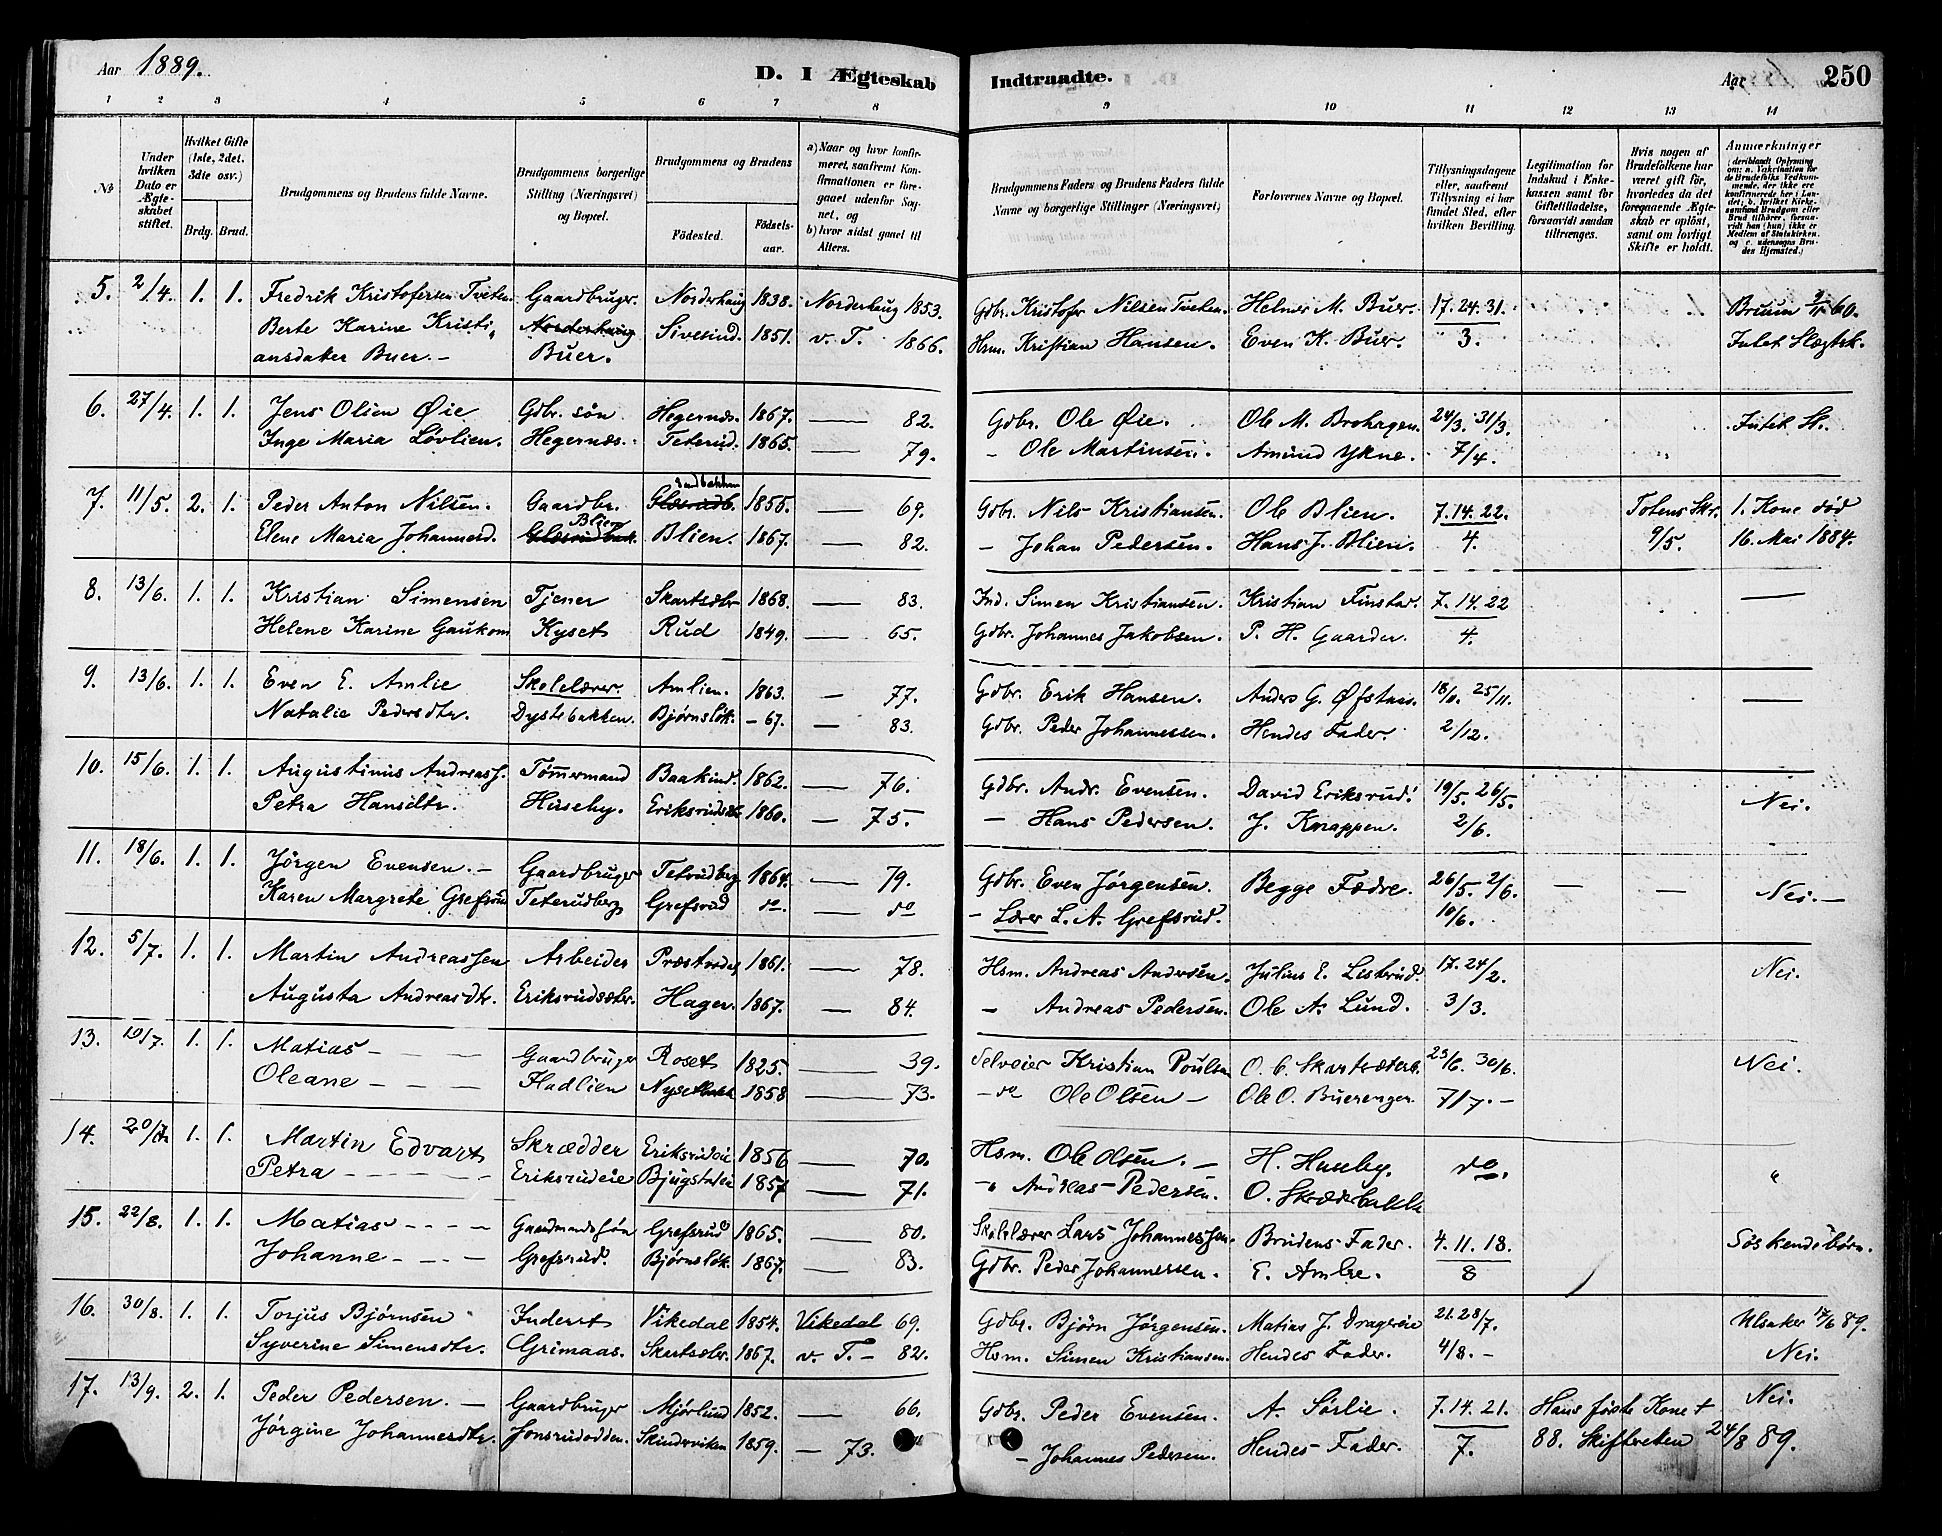 Aar 1889. D. I Ægteskab Indtraadte. Aar 250
1 2 3 4 5 6 7 8 9 10 11 12 13 14
№
Under hvilken Dato er Ægteskabet stiftet.
Hvilket Gifte (1ste, 2det, 3die osv.)
Brdg. Brud.
Brudgommens og Brudens fulde Navne.
Brudgommens borgerlige Stilling (Næringsvei) og Bopæl.
Brudgommens og Brudens
Födested. Födsels-aar.
a) Naar og hvor konfirmeret, saafremt Konfirmationen er foregaaet udenfor Sognet, og
b) hvor sidst gaaet til Alters.
Brudgommens Faders og Brudens Faders fulde Navne og borgerlige Stillinger (Næringsvei)
Forlovernes Navne og Bopæl.
Tillysningsdagene eller, saafremt Tillysning ei har fundet Sted, efter hvilken Bevilling.
Legitimation for Indskud i Enkekassen samt for Giftetilladelse, forsaavidt saadan tiltrænges.
Hvis nogen af Brudefolkene har været gift för, hvorledes da det foregaaende Ægteskab er oplöst, samt om lovligt Skifte er holdt.
Anmærkninger
5. 2/4. 1. 1. Fredrik Kristofersen Tveten Gaardbruger. Norderhaug 1838. Norderhaug 1853. Gdbr. Kristofer Nilsen Tveten. Helmer M. Buer. 17. 24. 31.
Berte Karine Kristi- Norderhaug Sivesind. 1851. v. T. 1866. Hsm. Kristian Hansen. Even K. Buer. 3. Intet Slægtsk.
ansdater Buer. – Buer.
6. 27/4. 1. 1. Jens Olien Øie Gdbr. søn Hegernæs. 1867. — 82. Gdbr. Ole Øie. Ole M. Brohagen. 24/3. 31/3.
Inge Maria Løvlien. Hegernæs. Teterud. 1865. — 79. – Ole Martinsen. Amund Ykne. 7/4.
7. 11/5. 2. 1. Peder Anton Nilsen. Gaardbr. 1855. — 69. Gdbr. Nils Kristiansen. Ole Blien. 7. 14. 22. Totens Skr. 1. Kone död
Elene Maria Johannesd. Blien Blien. 1867. — 82. – Johan Pedersen. Hans J. Blien. 4. 9/5. 16. Mai 1884.
8. 13/6. 1. 1. Kristian Simensen Tjener Skartsæter 1868. — 83. Ind. Simen Kristiansen. Kristian Finstad. 7. 14. 22 —
Helene Karine Gaukom Kyset Rud 1849. — 65. Gdbr. Johannes Jakobsen. P. H. Gaarder. 4.
9. 13/6. 1. 1. Even E. Amlie Skolelærer. Amlien. 1863. — 77. Gdbr. Erik Hansen. Anders G. Øfstaas. 18/11. 25/11. —
Natalie Pedersdtr. Dystebakken. Bjørnsløk. – 67. — 83. Gdbr. Peder Johannessen. Hendes Fader. 2/12.
10. 15/6. 1. 1. Augustinus Andreass. Tømmermand Baakind. 1862. — 76. Gdbr. Andr. Evensen. David Eriksrud. 19/5. 26/5.
Petra Hansdtr. Huseby. 1860. — 75. – Hans Pedersen. J. Knappen. 2/6. Nei.
11. 18/6. 1. 1. Jörgen Evensen. – Gaardbruger Teterudberg 1864. — 79. Gdbr. Even Jörgensen. Begge Fædre. 26/5. 2/6. — —
Karen Margrete Grefsrud Teterudberg Grefsrud do. — do – Lærer L. A. Grefsrud. 10/6. Nei. –
12. 5/7. 1. 1. Martin Andreassen Arbeider 1861. — 78. Hsm. Andreas Andersen. Julius E. Lisbrud. 17. 24/2. Nei.
Augusta Andreasdtr. Eriksrudsæter. Hager. 1867. — 84. – Andreas Pedersen. Ole A. Lund. 3/3.
13. 10/7. 1. 1. Matias – – – Gaardbruger Roset 1825. — 39. Selveier Kristian Poulsen 23/6. 30/6. Nei.
Oleane – – – Hadlien 1858 — 73. – do Ole Olsen – Ole O. Buerenger. 7/7. –
14. 20/7. 1. 1. Martin Edvart Skrædder Eriksrudeie 1856 — 70. Hsm. Ole Olsen. – H. Huseby. do. "
Petra – – – Eriksrudeie 1857 — 71. – " Andreas Pedersen.
15. 22/8. 1. 1. Matias – – – Gaardmandssøn Grefsrud 1865. — 80. Skolelærer Lars Johannessen. Brudens Fader. 4. 11. 18. Söskendebörn.
Johanne – – – Grefsrud. Bjørnsløk. 1867. — 83. Gdbr. Peder Johannessen. E. Amlie. 8
16. 30/8. 1. 1. Torjus Bjørnsen Inderst Vikedal 1854. Vikedal 69. Gdbr. Bjørn Jørgensen. Matias J. Drageeie 21. 28/7. Ulsaker 17/6 89.
Syverine Simensdtr. Grimaas. Skartsæter. 1867. v. T. – 82. Hsm. Simen Kristiansen. Hendes Fader. 4/8. – Nei.
17. 13/9. 2. 1. Peder Pedersen. – Gaardbruger Mjørlund 1852. — 66. Gdbr. Peder Evensen. A. Sørlie. 7. 14. 21. Hans første Kone + Nei.
Jørgine Johannesdtr. Jonsrudodden. Skinderviken 1859. — 73. – Johannes Pedersen. Hendes Fader. 7. 88. Skifteretten 24/8 89.